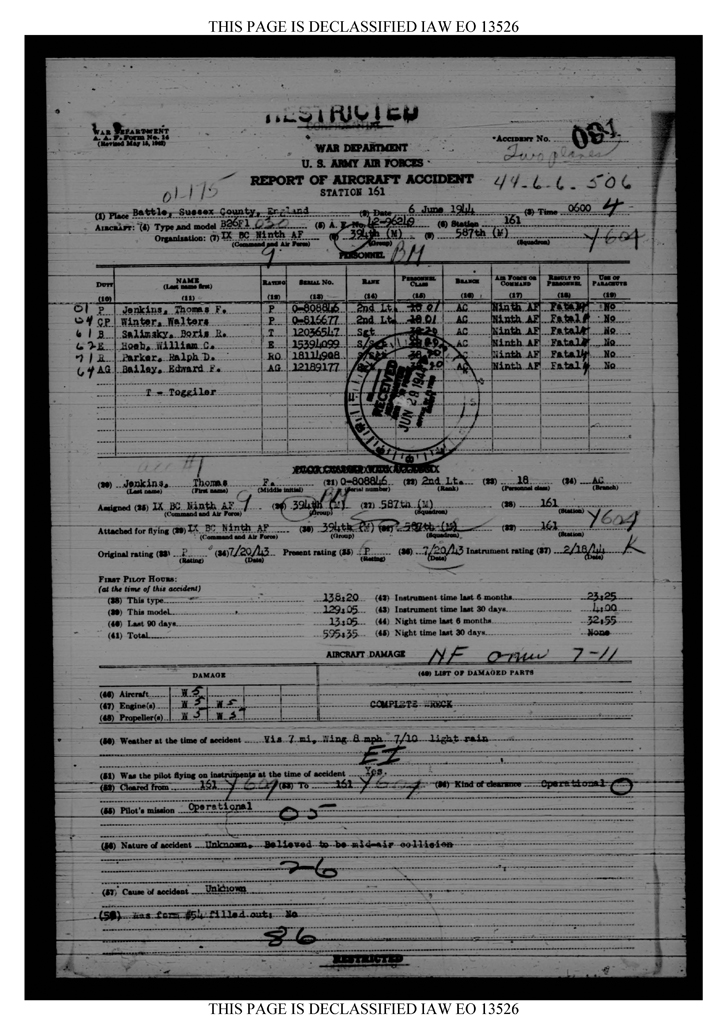 THIS PAGE IS DECLASSIFIED IAW EO 13526
RESTRICTED
WAR DEPARTMENT
A. A. F. Form No. 14
(Revised May 15, 1942)
ACCIDENT No. 001
Two planes
WAR DEPARTMENT
U. S. ARMY AIR FORCES
REPORT OF AIRCRAFT ACCIDENT
STATION 161
44-6-6-506
01-175
(1) Place Battle, Sussex County, England (2) Date 6 June 1944 (3) Time 0600 4
AIRCRAFT: (4) Type and model B26F1 030 (5) A. F. No. 42-96249 (6) Station 161
Organization: (7) IX BC Ninth AF (8) 394th (M) (9) 587th (M) Y604
(Command and Air Force) (Group) (Squadron)
9 BM
PERSONNEL
DUTY NAME (Last name first) RATING SERIAL NO. RANK PERSONNEL CLASS BRANCH AIR FORCE OR COMMAND RESULT TO PERSONNEL USE OF PARACHUTE
(10) (11) (12) (13) (14) (15) (16) (17) (18) (19)
01 P Jenkins, Thomas F. P 0-808846 2nd Lt. 18 01 AC Ninth AF Fatal No
04 CP Winter, Walters P 0-816677 2nd Lt. 18 01 AC Ninth AF Fatal No
61 B Salimsky, Boris R. T 12036547 Sgt AC Ninth AF Fatal No
62 E Hoeb, William C. E 15394099 AC Ninth AF Fatal No
71 R Parker, Ralph D. RO 18114908 AC Ninth AF Fatal No
64 AG Bailey, Edward F. AG 12189177 AC Ninth AF Fatal No
RECEIVED
JUN 28 1944
T - Toggiler
acc #1
PILOT CHARGED WITH ACCIDENT
(20) Jenkins, Thomas F. (21) 0-808846 (22) 2nd Lt. (23) 18 (24) AC
(Last name) (First name) (Middle initial) (Serial number) (Rank) (Personnel class) (Branch)
9 BM
Assigned (25) IX BC Ninth AF (26) 394th (M) (27) 587th (M) (28) 161
(Command and Air Force) (Group) (Squadron) (Station)
Attached for flying (29) IX BC Ninth AF (30) 394th (M) (31) 587th (M) (32) 161 Y604
(Command and Air Force) (Group) (Squadron) (Station)
K
Original rating (33) P (34) 7/20/43 Present rating (35) P (36) 7/20/43 Instrument rating (37) 2/18/44
(Rating) (Date) (Rating) (Date) (Date)
FIRST PILOT HOURS:
(at the time of this accident)
(38) This type 138:20 (42) Instrument time last 6 months 23:25
(39) This model 129:05 (43) Instrument time last 30 days 4:00
(40) Last 90 days 13:05 (44) Night time last 6 months 32:55
(41) Total 595:35 (45) Night time last 30 days None
AIRCRAFT DAMAGE NF 7-11
DAMAGE (49) LIST OF DAMAGED PARTS
(46) Aircraft W 5
(47) Engine(s) W 5 W 5
(48) Propeller(s) W 5 W 5
COMPLETE WRECK
(50) Weather at the time of accident Vis 7 mi, Wing 8 mph 7/10 light rain
EI
(51) Was the pilot flying on instruments at the time of accident Yes.
(52) Cleared from 161 Y604 (53) To 161 Y604 (54) Kind of clearance Operational O
(55) Pilot's mission Operational
05
(56) Nature of accident Unknown. Believed to be mid-air collision
26
(57) Cause of accident Unknown
(58) Was form #54 filled out: No
86
RESTRICTED
THIS PAGE IS DECLASSIFIED IAW EO 13526